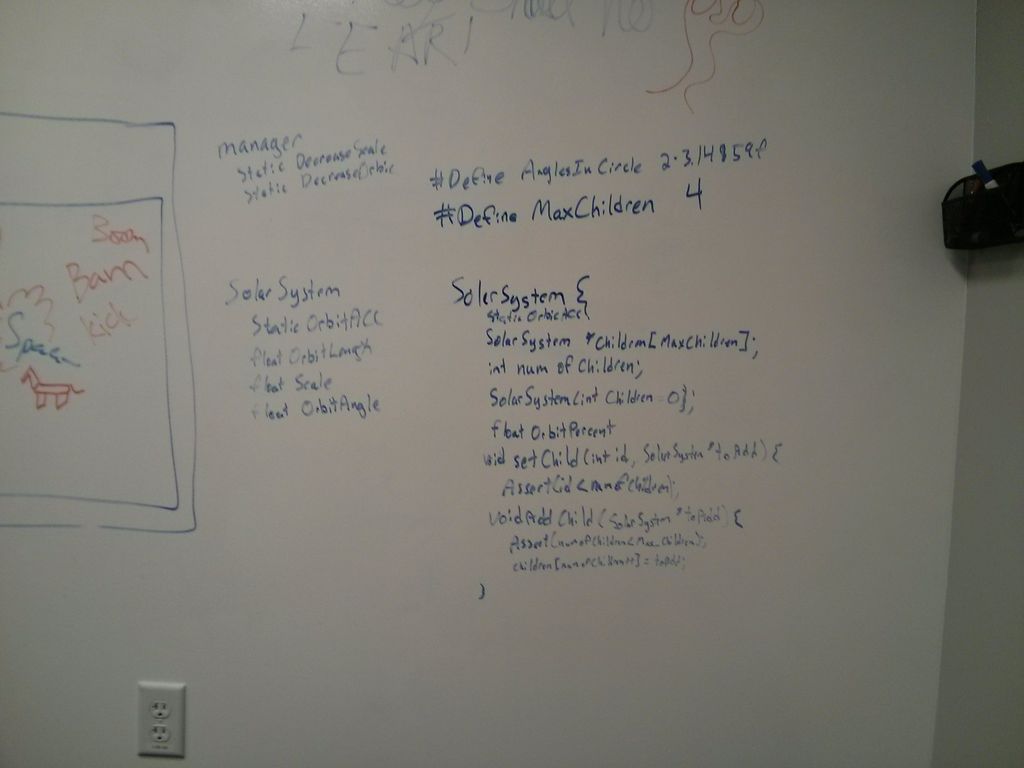 LEAR!
manager
Static DecreaseScale
Static DecreaseOrbit
#Define AnglesInCircle 2·3.14859f
#Define MaxChildren 4
Boom
Bam
kick
Space
Solar System
Static OrbitACC
float OrbitLength
float Scale
float OrbitAngle
SolarSystem {
Static OrbitAcc
SolarSystem *Children[MaxChildren];
int num of Children;
SolarSystem(int Children = 0);
float OrbitPercent
void setChild(int id, SolarSystem *toAdd) {
Assert(id < numofChildren);
Void Add Child (SolarSystem *toAdd) {
Assert(numofChildren < Max_Children);
children[numofChildren++] = toAdd;
}